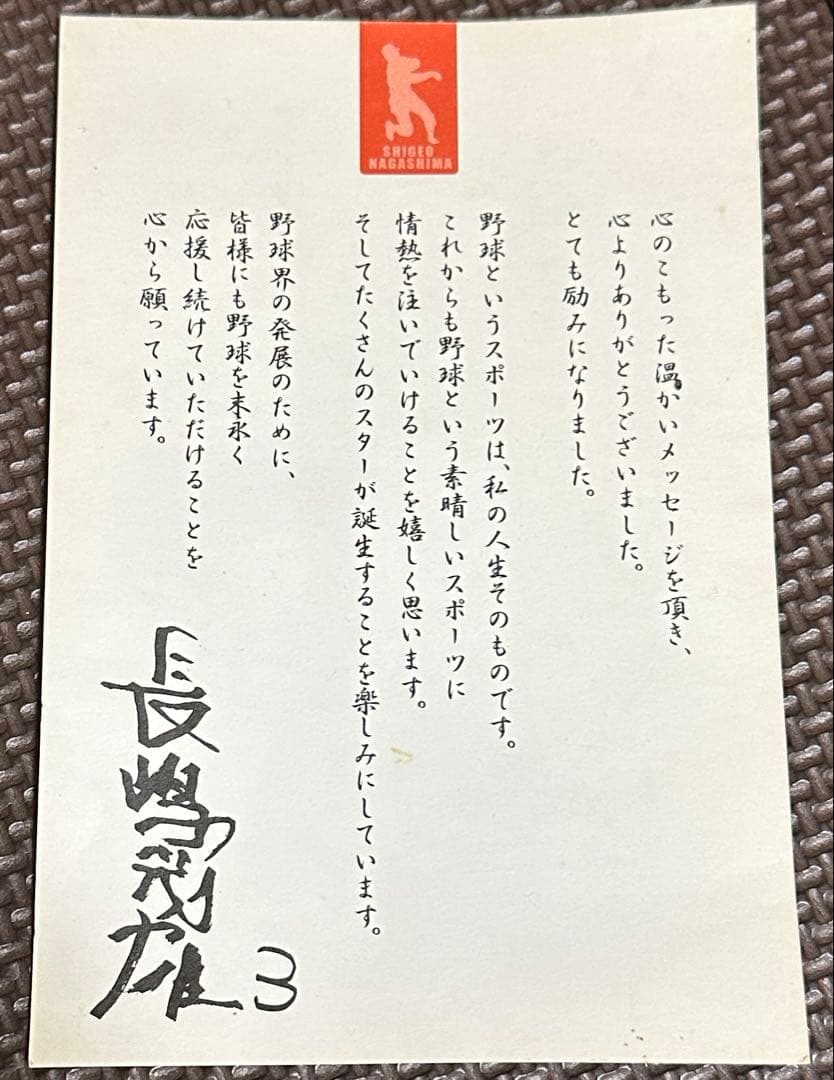 SHIGEO
NAGASHIMA
心のこもった温かいメッセージを頂き、
心よりありがとうございました。
とても励みになりました。
野球というスポーツは、私の人生そのものです。
これからも野球という素晴しいスポーツに
情熱を注いでいけることを嬉しく思います。
そしてたくさんのスターが誕生することを楽しみにしています。
野球界の発展のために、
皆様にも野球を末永く
応援し続けていただけることを
心から願っています。
長嶋茂雄 3